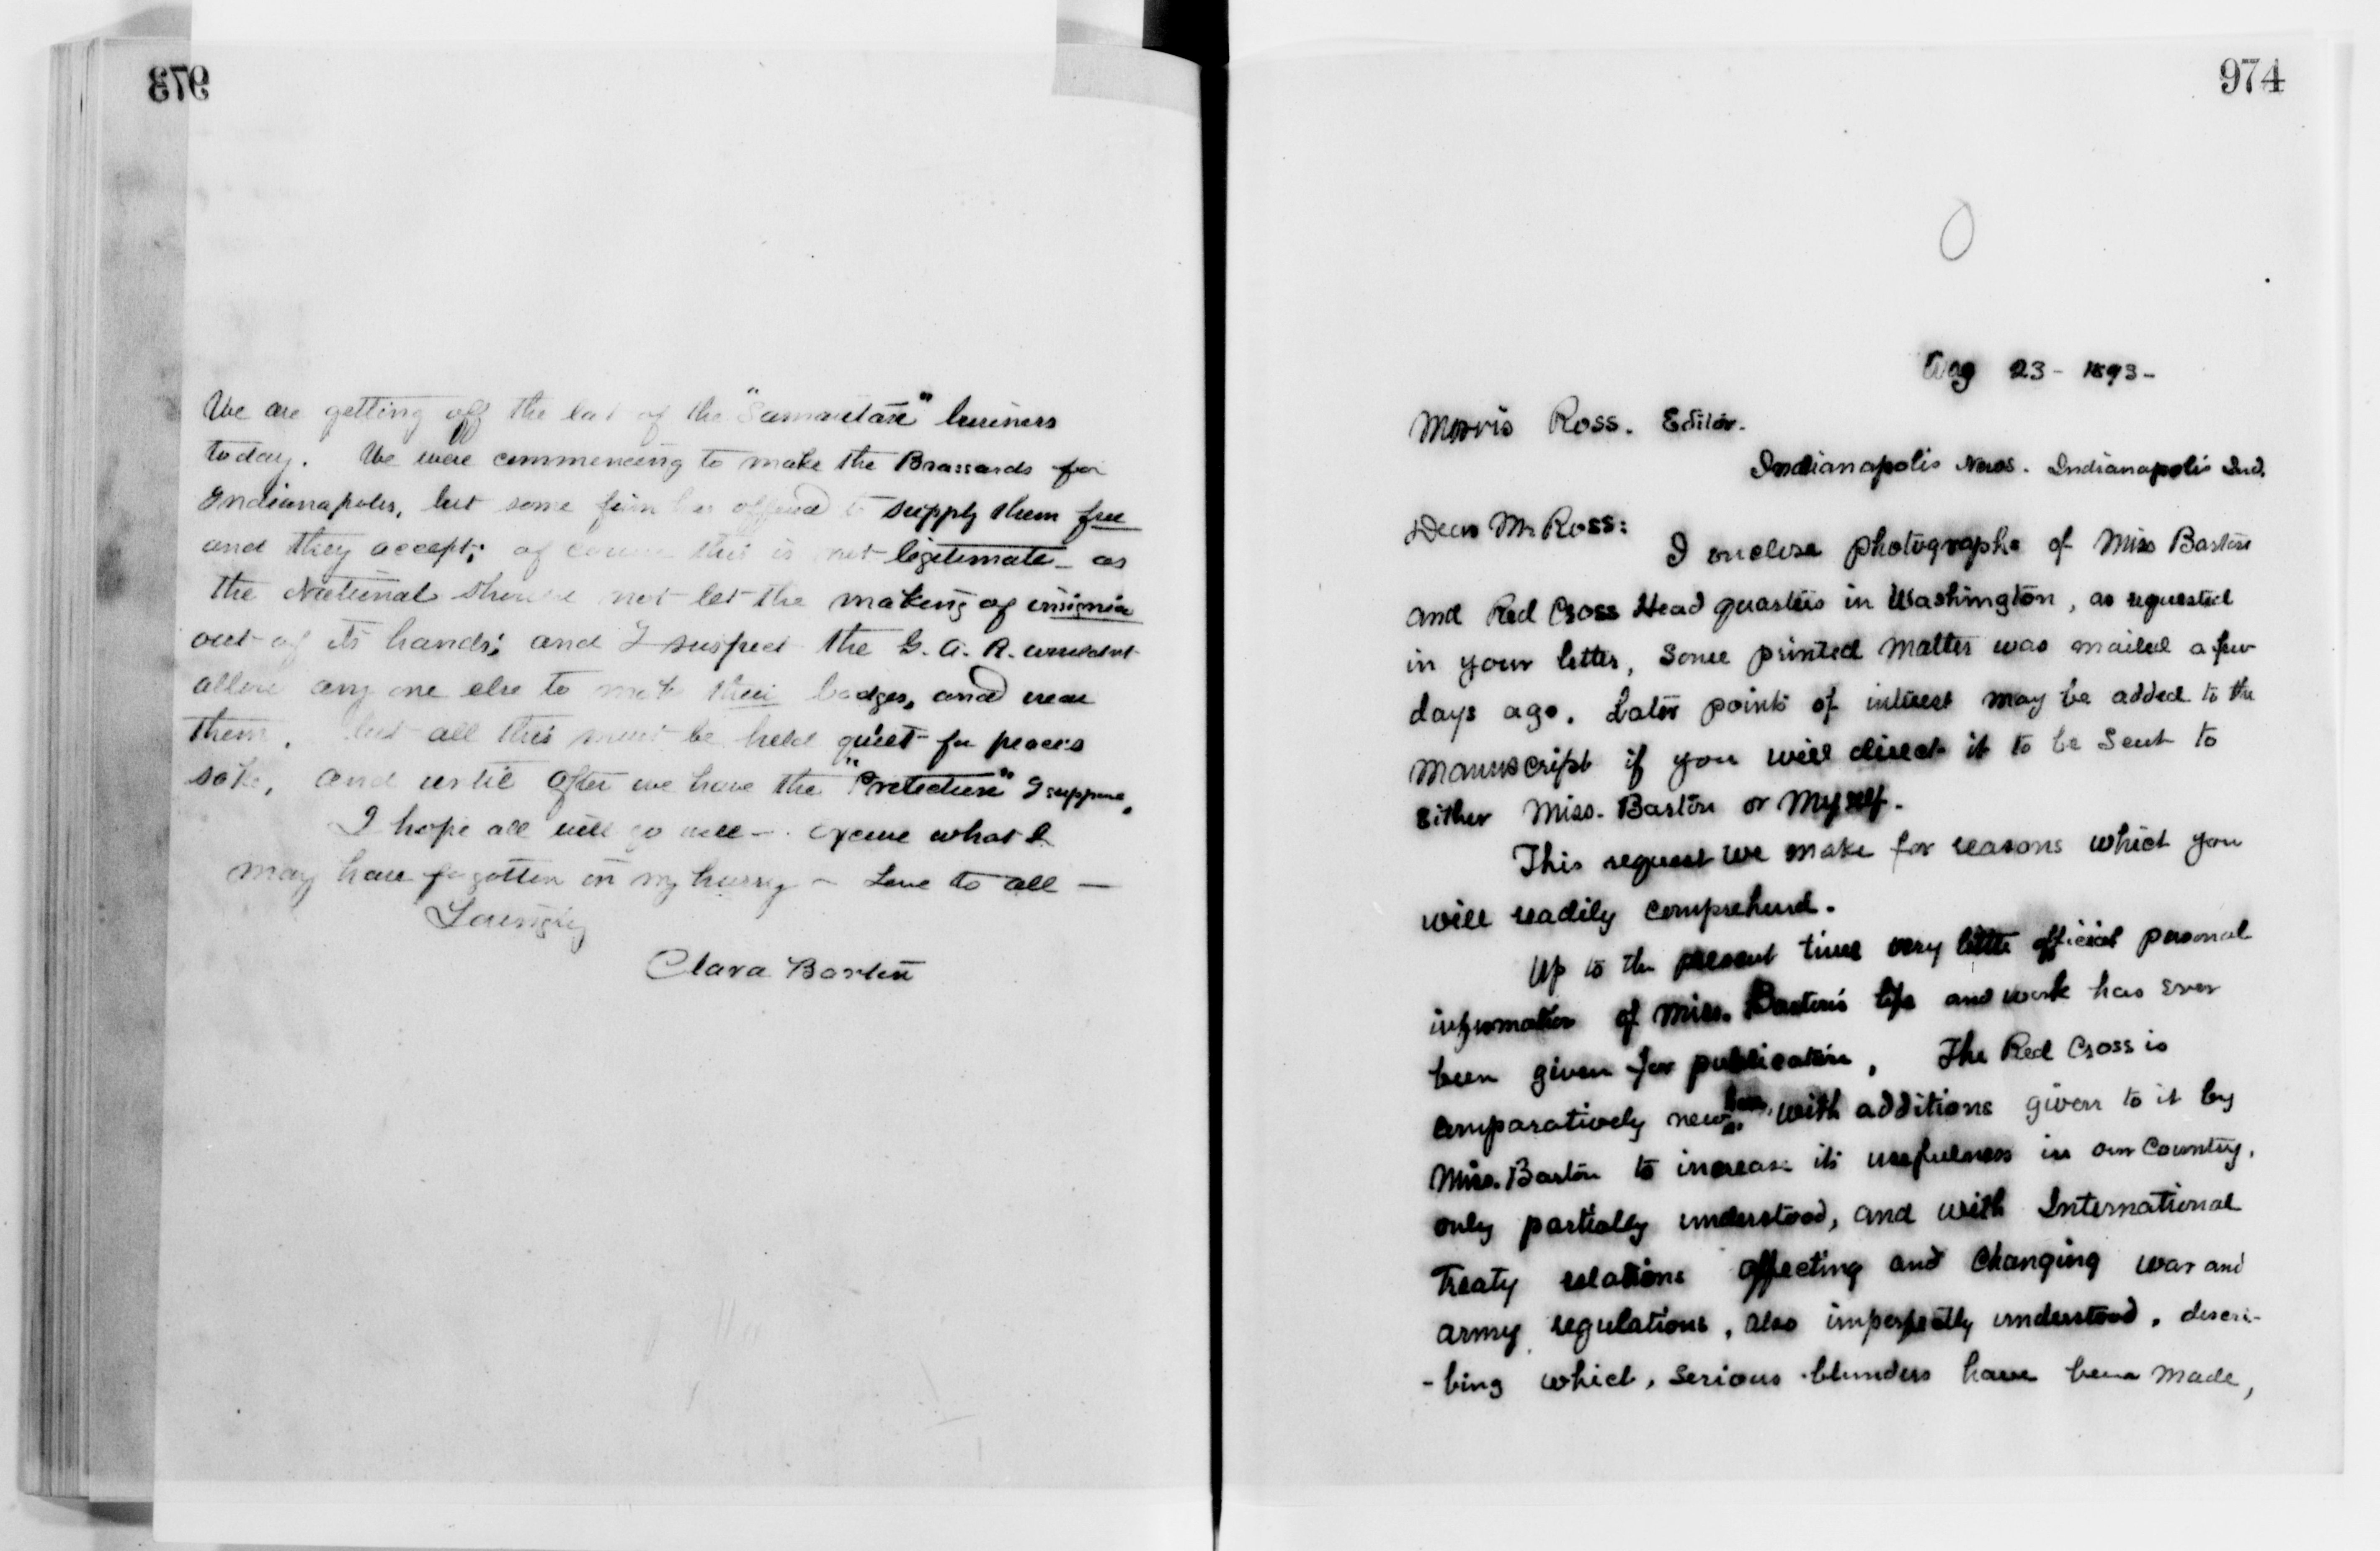 973
We are getting off the last of the "Samaritan" business
today. We were commencing to make the Brassards for
Indianapolis, but some firm has offered to supply them free
and they accept; of course this is not legitimate - as
the National should not let the making of insignia
out of its hands; and I suspect the G. A. R. wouldnt
allow any one else to make their badges, and wear
them. but all this must be held quiet for peaces
sake, and until after we have the "Protection" I suppose.
I hope all will go well - excuse what I
may have forgotten in my hurry - Love to all -
Lovingly
Clara Barton
974
Aug 23 - 1893 -
Morris Ross. Editor.
Indianapolis News. Indianapolis Ind.
Dear Mr Ross:
I enclose photographs of Miss Barton
and Red Cross Head quarters in Washington, as requested
in your letter, Some printed matter was mailed a few
days ago. Later points of interest may be added to the
Manuscript if you will direct it to be sent to
either Miss. Barton or Myself.
This request we make for reasons which you
will readily comprehend.
Up to the present time very little official personal
information of Miss. Barton's life and work has ever
been given for publication, The Red Cross is
comparatively new here, with additions given to it by
Miss. Barton to increase its usefulness in our Country,
only partially understood, and with International
Treaty relations affecting and changing war and
army regulations, also imperfectly understood, descri-
-bing which, serious blunders have been made,